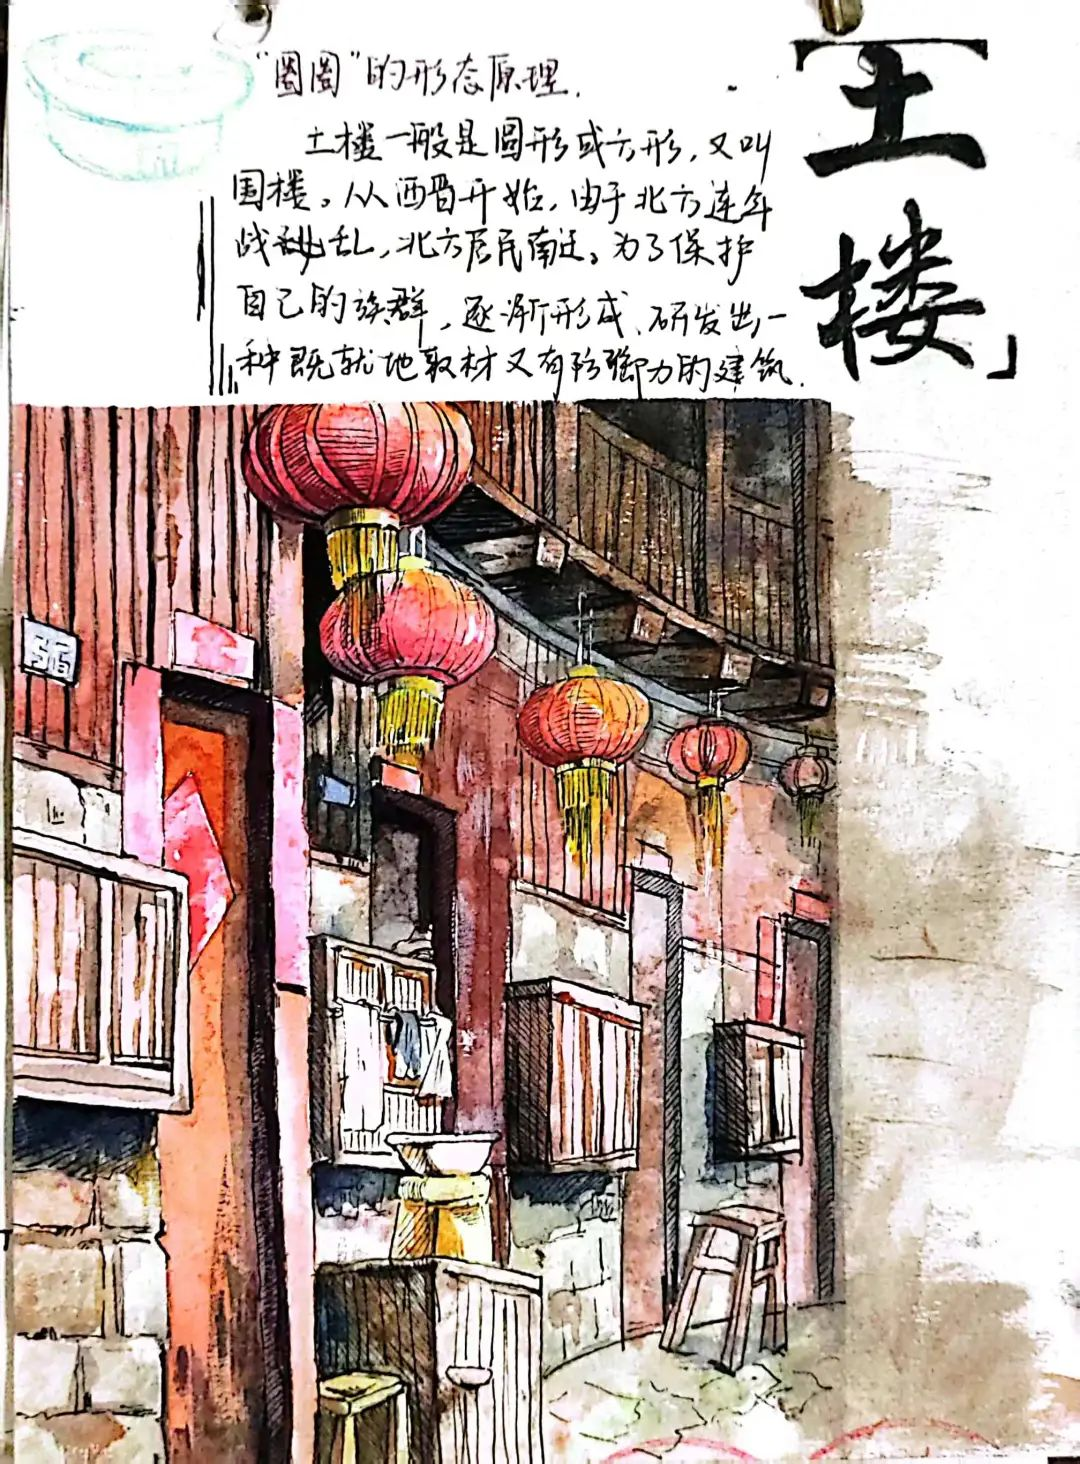 【土楼」
“圈圈”的形态原理.
土楼一般是圆形或方形，又叫
围楼。从西晋开始，由于北方连年
战乱，北方居民南迁。为了保护
自己的族群，逐渐形成、研发出一
种既就地取材又有防御力的建筑.